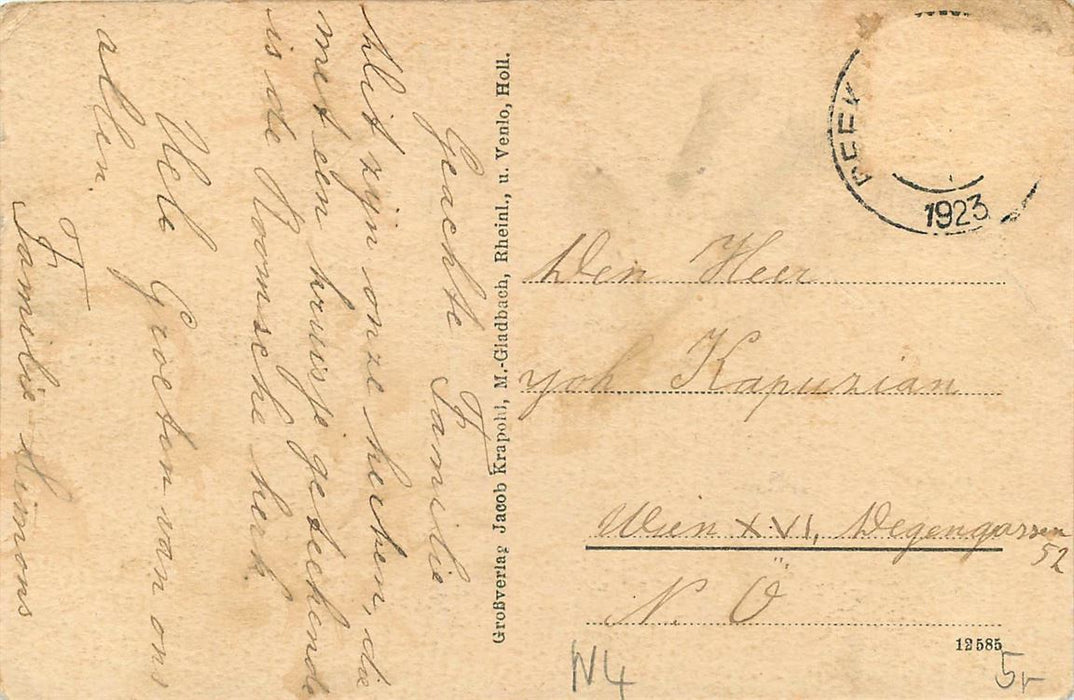 Geachte Familie
Dit zijn onze kerken, die
met een kruisje getekende
is de Roomsche kerk.
Vele Groeten van ons
allen.
Familie Simons
Großverlag Jacob Krapohl, M.-Gladbach, Rheinl., u. Venlo, Holl.
1923
Den Heer
Joh. Kapunian
Wien XVI, Degengassen
52
N. Ö
12585
N4
5,-